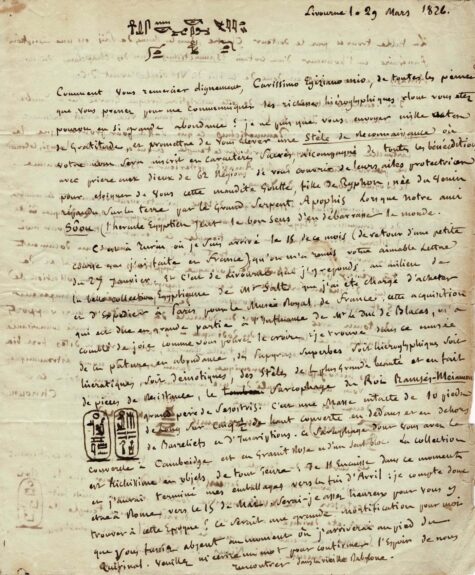 Livourne le 29 Mars 1826.
Comment vous remercier dignement, Carissimo Egiziano mio, de toutes les peines
que vous prenez pour me communiquer les richesses hiéroglyphiques dont vous êtes
pourvu, en si grande abondance? je ne puis que vous envoyer mille
de Gratitude, et promettre de vous élever une Stèle de Reconnaissance, où
votre nom sera inscrit en caractères Sacrés, accompagné de toutes les bénédictions
avec prière aux dieux de la Région de vous couvrir de leurs ailes protectrices
pour éloigner de vous cette maudite Goutte, fille de Typhon, née du
sur la terre par le Grand Serpent Apophis lorsque notre ami
Sôou (l'hercule Egyptien) eut le bon sens d'en débarrasser le monde.
C'est à Turin où je suis arrivé le 15 de ce mois (de retour d'une petite
course que j'ai faite en France) qu'on m'a remis votre aimable lettre
du 27 janvier, et c'est de Livourne que j'y réponds au milieu de
la belle collection Egyptienne de Mr Salt que j'ai été chargé d'acheter
et d'expédier à Paris pour le Musée Royal de France; cette acquisition
qui est due en grande partie à l'influence de Mr le duc de Blacas, m'a
comblé de joie comme vous pouvez le croire: je trouve dans ce musée
de la pâture en abondance, des papyrus superbes soit hiéroglyphiques soit
hiératiques, soit démotiques, des Stèles de la plus grande beauté et en fait
de pièces de Résistance, le Sarcophage du Roi Ramsès-Méiamoun
grand père de Sésostris: c'est une Masse intacte de 10 pieds
de long sur de haut couverte en dedans et en dehors
de Basreliefs et d'Inscriptions. le Sarcophage dont vous avez le
couvercle à Cambridge est en Granit Rose et d'un seul bloc. la collection
est Richissime en objets de tout genre: je M'encaisse dans ce moment
et j'aurai terminé mes emballages vers la fin d'Avril: je compte donc
être à Rome, vers le 15 de Mai: serai-je assez heureux pour vous y
trouver à cette époque? ce serait une grande mortification pour moi
que vous fussiez absent au moment où j'arriverai au pied du
Quirinal. Veuillez m'écrire un mot pour confirmer l'espoir de nous
rencontrer dans la vieille Babylone.